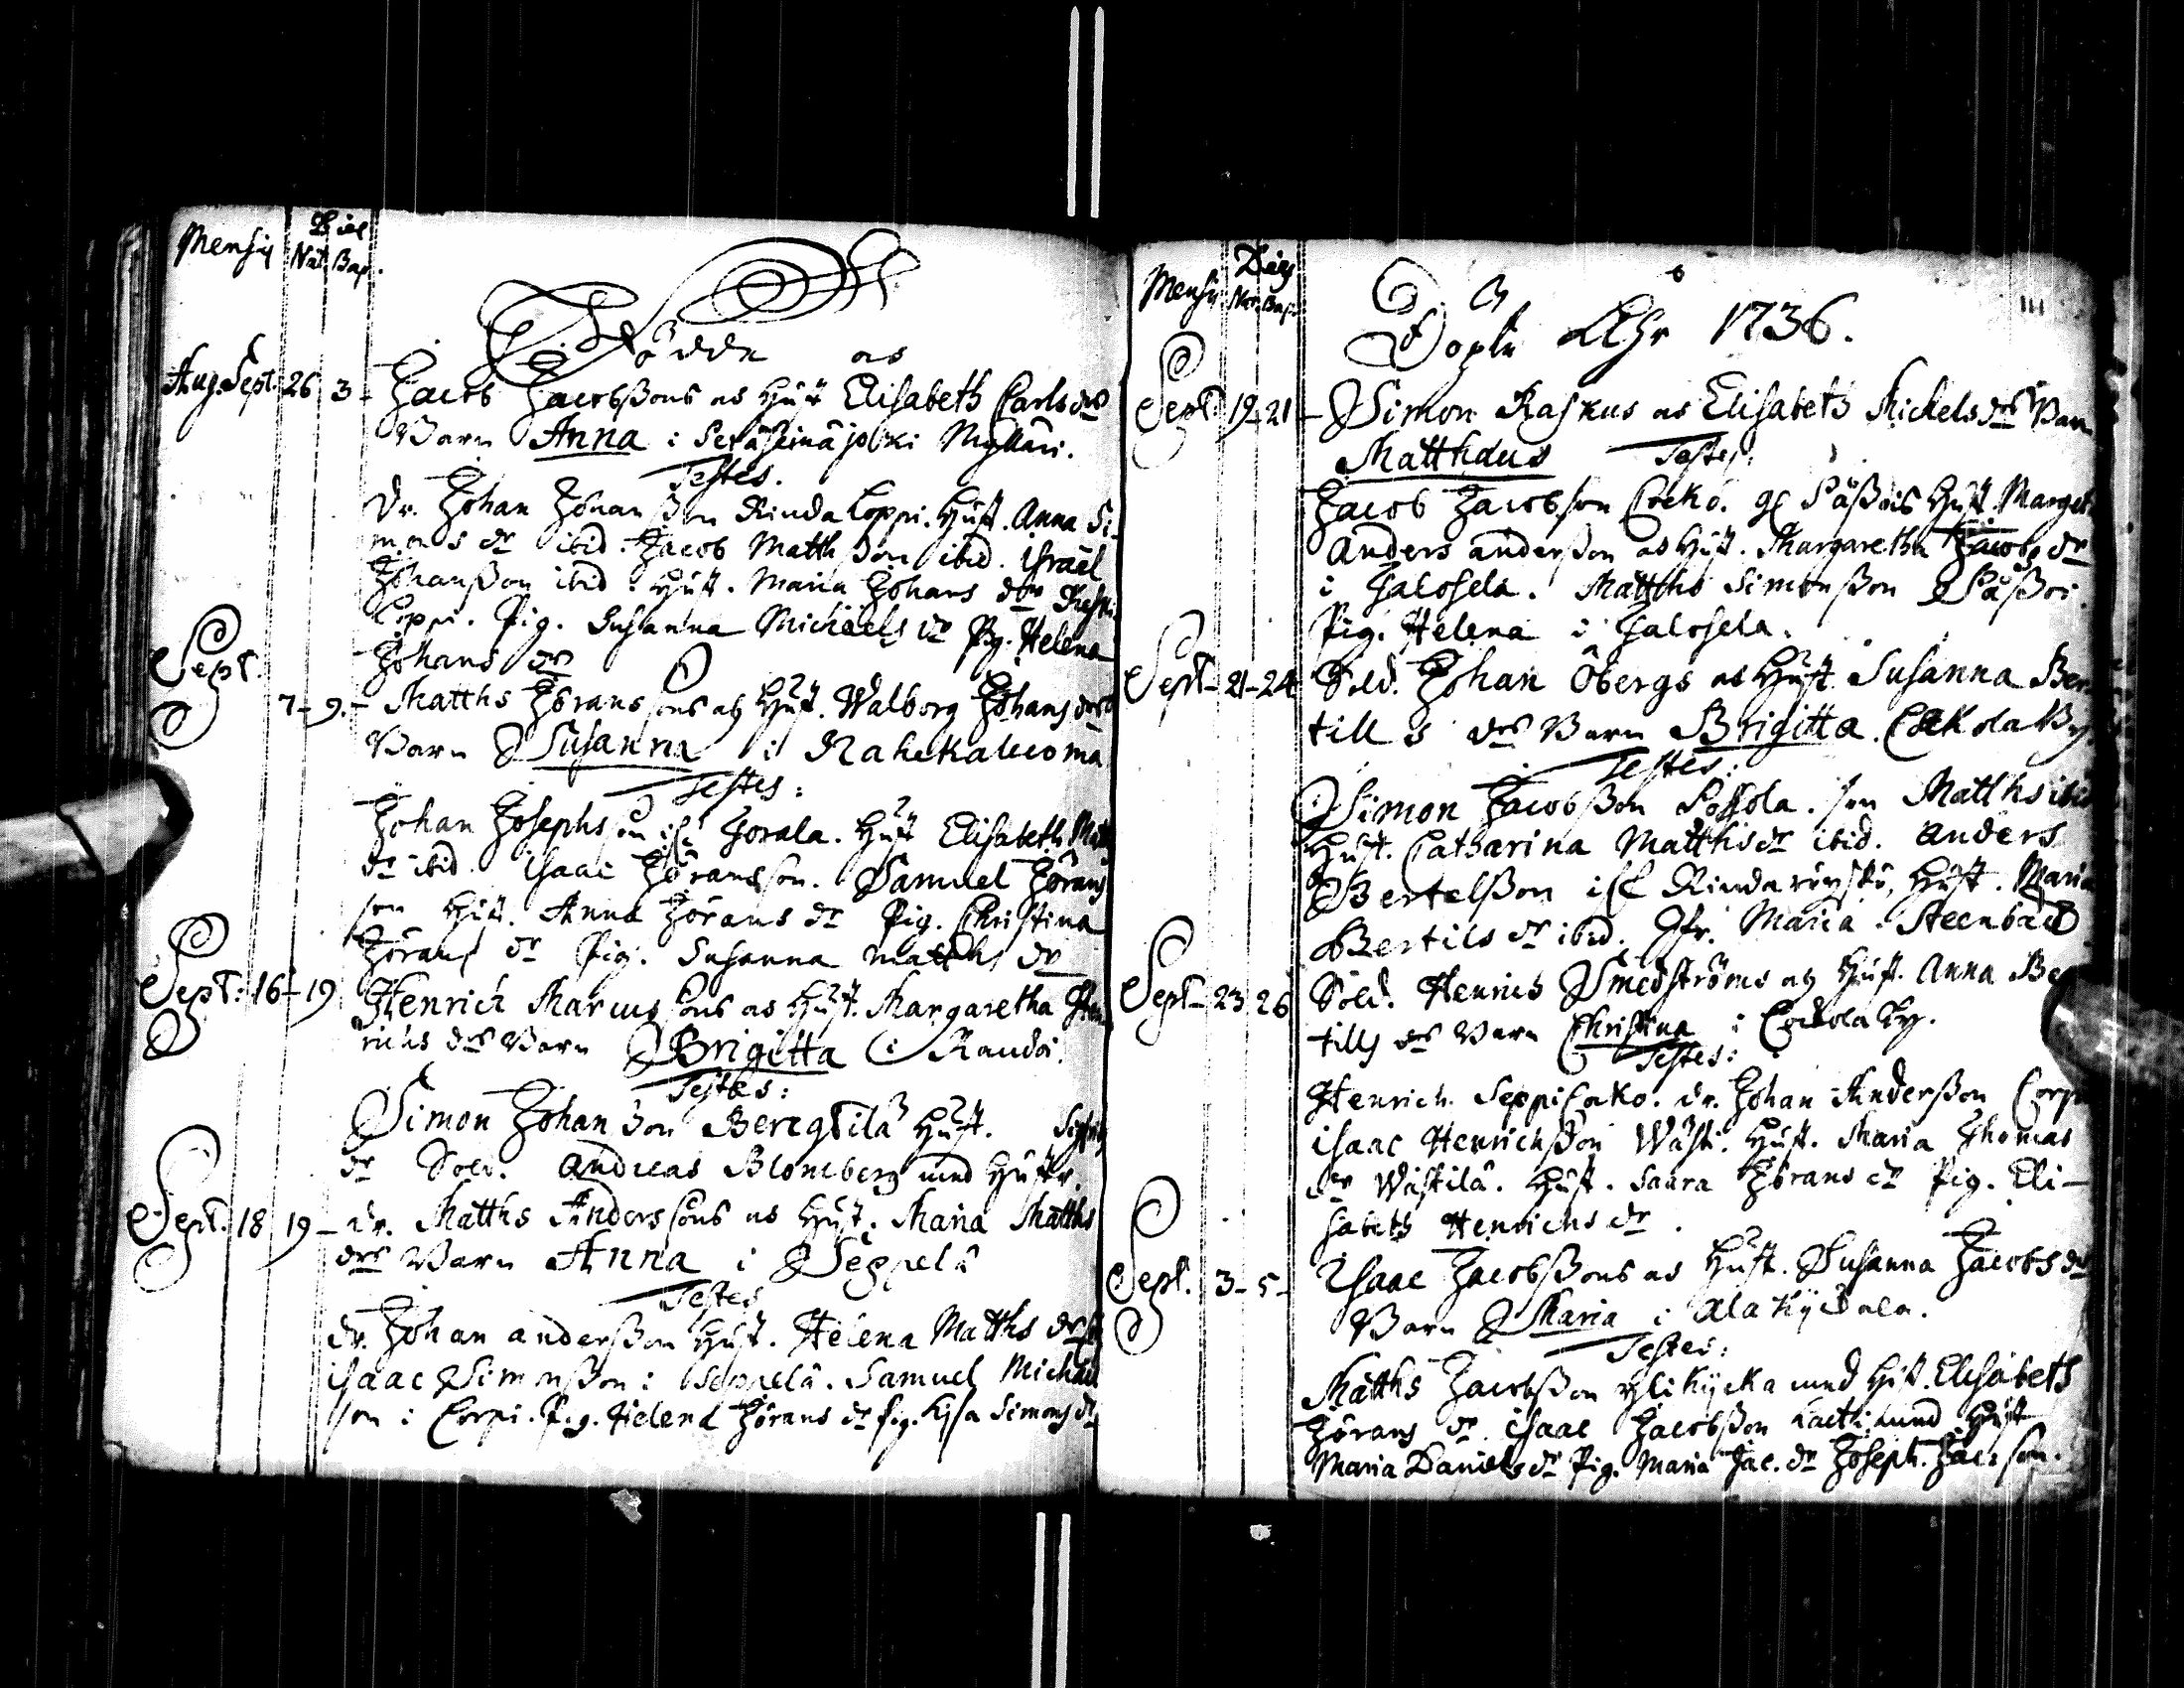 Mensis Dies
Nat. Bap.
Födde os
Aug. Sept. 26 3 - Jacob Jacobßons os Hust Elisabeth Carls drs
Barn Anna i Peräseinäjoki Myllari.
Testes.
Dr. Johan Johanßon Rindaloppi. Hust. Anna Si-
mons dr ibid. Jacob Matthßon ibid. Israël
Johanßon ibid. Hust. Maria Johans dr
Loppi. Pig. Susanna Michaels dr Pig. Helena
Johans dr
Sept. 7 - 9. - Matths Jörans sons os Hust. Walborg Johans drs
Barn Susanna i Rahekaluoma
Testes:
Johan Josephsson i Jorala. Hust Elisabeth Matths
dr ibid. Isaac Jöransson. Samuel Jörans
son Hust. Anna Jörans dr Pig. Christina
Jörans dr Pig. Susanna Matths dr
Sept: 16 - 19 Henrich Marcus sons os Hust. Margaretha Hen
richs drs Barn Brigitta i Rauda.
Testes:
Simon Johan son Beregtilä Hust.
dr Sold. Andreas Blomberg med Hustr.
Sept. 18 19 - dr. Matths Anders sons os Hust. Maria Matths
drs Barn Anna i Seppelä
Testes
dr. Johan anderßon Hust. Helena Matths dr
isaac Simonßon i Seppelä. Samuel Michael
son i Corpi. Pig. Helena Jörans dr Pig. Lisa Simons dr
Mensis Dies
Nat. Bap.
Döpte Åhr 1736.
Sept: 19 - 21 - Simon Raskus os Elisabeth Mickels drs Barn
Matthæus Testes:
Jacob Jacobson Cocko. Hust. Marget
Anders anderßon os Hust. Margaretha Jacobs dr
i Jalosela. Matths Simonßon
Pig. Helena i Jalosela.
Sept - 21 - 24 Sold. Johan Öbergs os Hust Susanna Ber-
till s drs Barn Brigitta. Cockola By.
Testes:
Simon Jacobßon Possola. son Matths ibid
Hust. Catharina Matths dr ibid. Anders
Bertelßon Hust. Maria
Bertils dr ibid. Jfr. Maria Steenbäck
Sept - 23 26 Sold. Henrichs Smedströms os Hust. Anna Ber
tills drs Barn Christina i Cockola By.
Testes:
Henrich Seppi Cocko. dr. Johan Anderßon Corpi
isaac Henrichßon Wästi. Hust. Maria Thomas
dr Wästilä. Hust. Saara Jörans dr Pig. Eli-
sabeth Henrichs dr.
Sept. 3 - 5 - Isaac Jacobßons os Hust. Susanna Jacobs drs
Barn Maria i Ala
Testes:
Matths Jacobßon med Hust. Elisabeth
Jörans dr. isaac Jacobßon med Hust
Maria Daniels dr Pig. Maria Jac. dr Joseph. Jac. son.